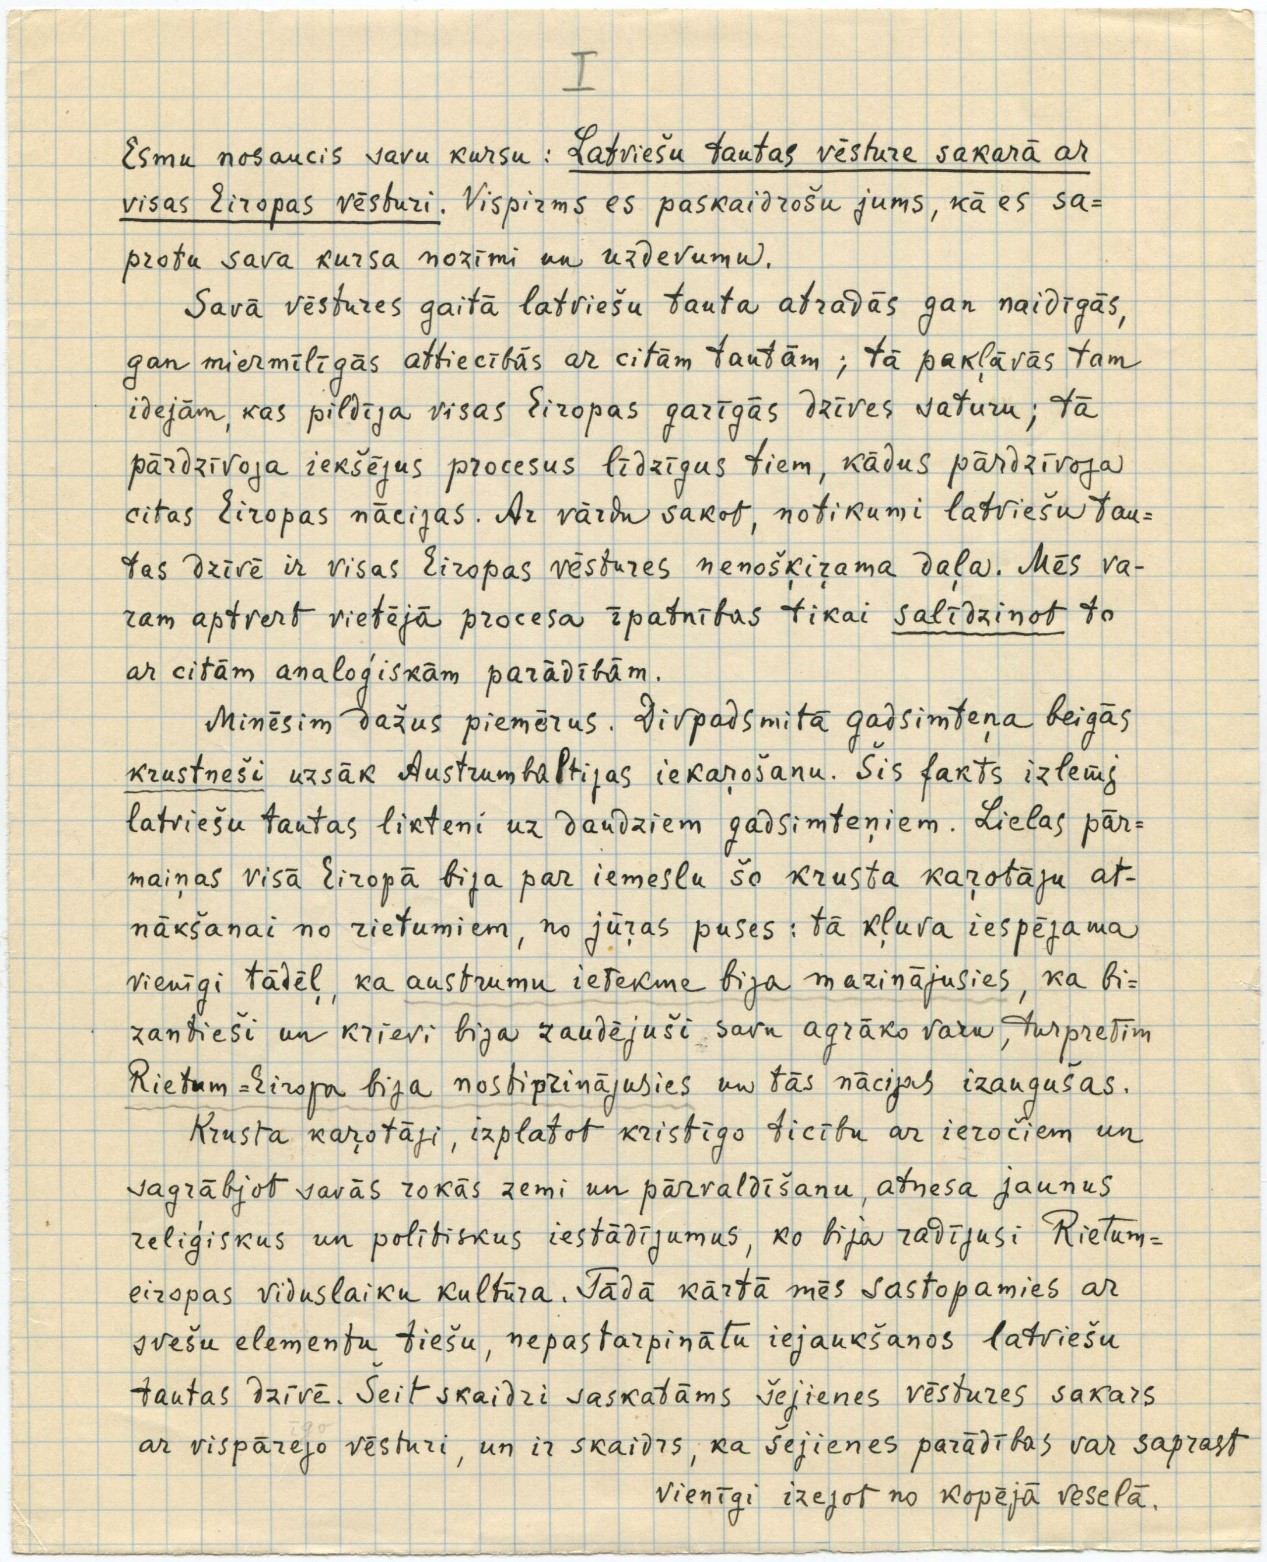 I
Esmu nosaucis savu kursu: Latviešu tautas vēsture sakarā ar
visas Eiropas vēsturi. Vispirms es paskaidrošu jums, kā es sa=
protu sava kursa nozīmi un uzdevumu.
Savā vēstures gaitā latviešu tauta atradās gan naidīgās,
gan miermīlīgās attiecībās ar citām tautām; tā pakļāvās tam
idejām, kas pildīja visas Eiropas garīgās dzīves saturu; tā
pārdzīvoja iekšējus procesus līdzīgus tiem, kādus pārdzīvoja
citas Eiropas nācijas. Ar vārdu sakot, notikumi latviešu tau=
tas dzīvē ir visas Eiropas vēstures nenošķiŗama daļa. Mēs va-
ram aptvert vietējā procesa īpatnības tikai salīdzinot to
ar citām analoģiskām parādībām.
Minēsim dažus piemērus. Divpadsmitā gadsimteņa beigās
krustneši uzsāk Austrumbaltijas iekaŗošanu. Šis fakts izlēmj
latviešu tautas likteni uz daudziem gadsimteņiem. Lielas pār=
maiņas visā Eiropā bija par iemeslu šo krusta kaŗotāju at-
nākšanai no rietumiem, no jūŗas puses: tā kļuva iespējama
vienīgi tādēļ, ka austrumu ietekme bija mazinājusies, ka bi=
zantieši un krievi bija zaudējuši savu agrāko varu, turpretīm
Rietum=Eiropa bija nostiprinājusies un tās nācijas izaugušas.
Krusta kaŗotāji, izplatot kristīgo ticību ar ieročiem un
sagrābjot savās rokās zemi un pārvaldīšanu, atnesa jaunus
reliģiskus un politiskus iestādījumus, ko bija radījusi Rietum=
eiropas viduslaiku kultūra. Tādā kārtā mēs sastopamies ar
svešu elementu tiešu, nepastarpinātu iejaukšanos latviešu
tautas dzīvē. Šeit skaidri saskatāms šejienes vēstures sakars
īgo
ar vispārejo vēsturi, un ir skaidrs, ka šejienes parādības var saprast
vienīgi izejot no kopējā veselā.